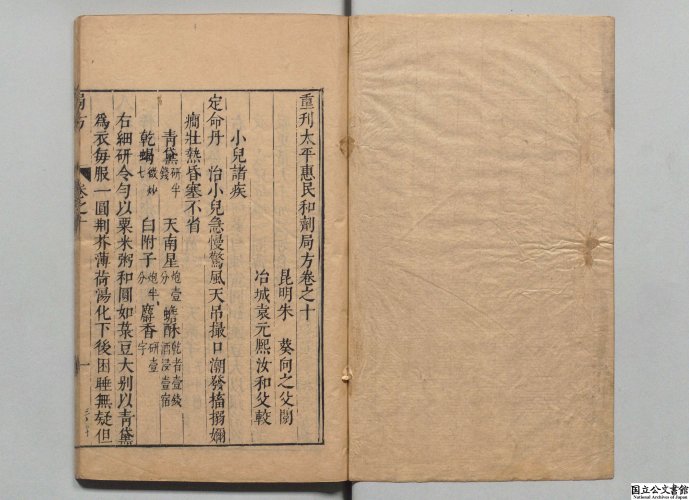 重刊太平惠民和劑局方卷之十
昆明朱 葵向之父閱
冶城袁元熙汝和父較
小兒諸疾
定命丹 治小兒急慢驚風天吊撮口潮發搐搦嬭
癇壯熱昏塞不省
青黛研半錢 天南星炮壹分 蟾酥乾者壹錢酒浸壹宿
乾蝎微炒七 白附子炮半分 麝香研壹字
右細研令勻以粟米粥和圓如菉豆大别以青黛
爲衣每服一圓荆芥薄荷湯化下後困睡無疑但
局方 卷之十 一
国立公文書館
National Archives of Japan